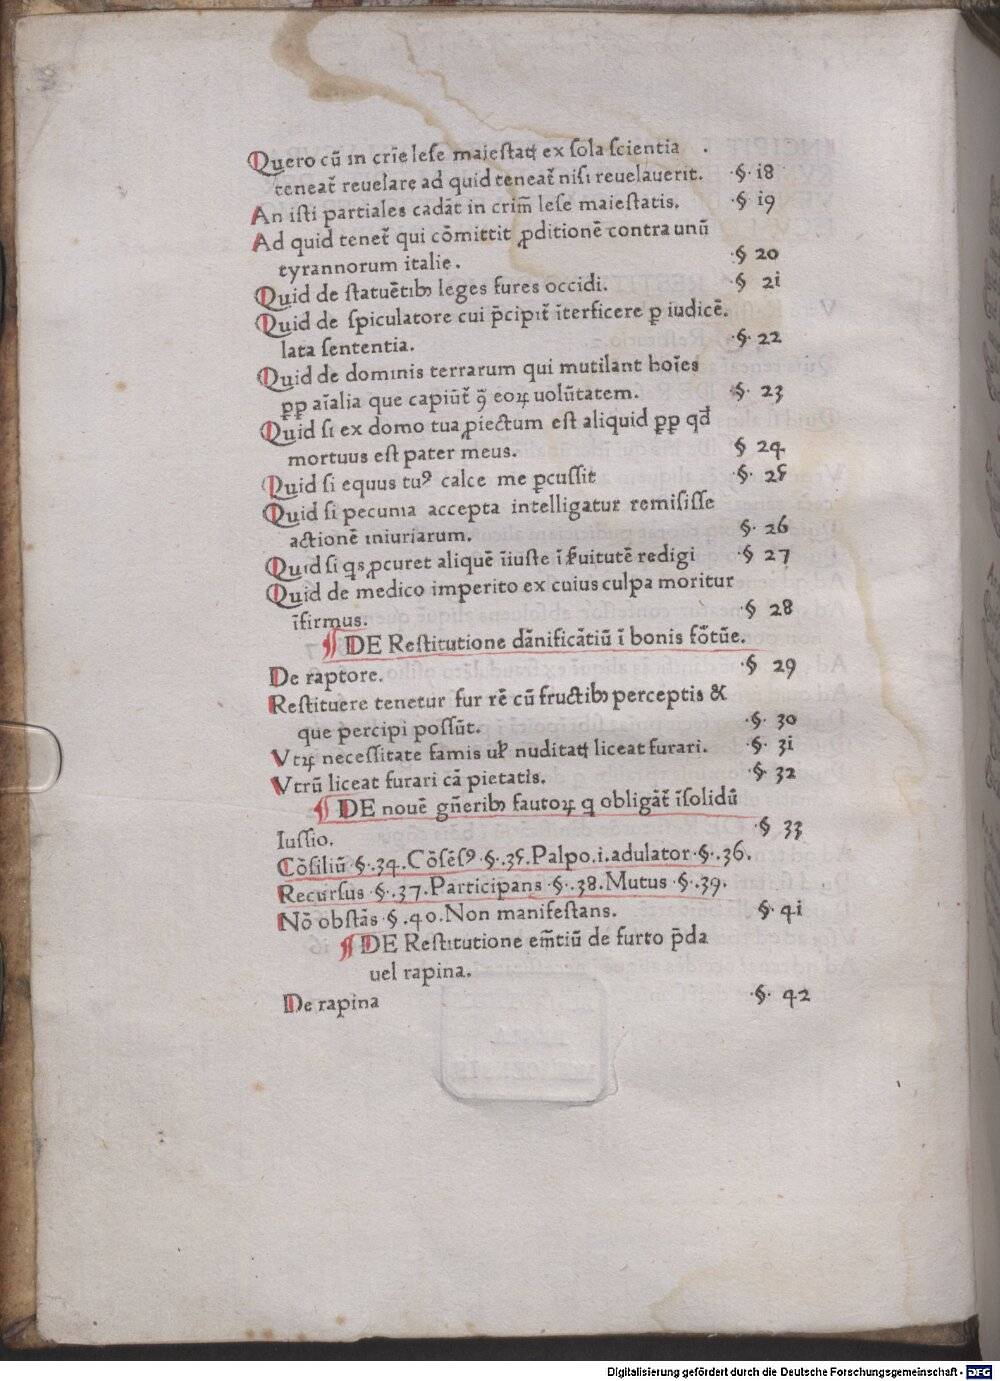 Quero cū in crīe lese maiestatꝭ ex sola scientia
teneat̄ reuelare ad quid teneat̄ nisi reuelauerit. ·§· i8
An isti partiales cadāt in crim̄ lese maiestatis. ·§ i9
Ad quid tenet̄ qui cōmittit ꝓditionē contra unū
tyrannorum italie. ·§ 20
Quid de statuētibꝫ leges fures occidi. ·§ 2i
Quid de spiculatore cui p̄cipit̄ īterficere ꝑ iudicē.
lata sententia. ·§· 22
Quid de dominis terrarum qui mutilant hoīes
ꝓꝑ aīalia que capiūt̄ ꝯ̄ eoꝝ uolūtatem. ·§· 23
Quid si ex domo tua ꝓiectum est aliquid ꝓꝑ qd̄
mortuus est pater meus. § 24
Quid si equus tuꝰ calce me ꝑcussit ·§· 25
Quid si pecunia accepta intelligatur remisisse
actionē iniuriarum. §· 26
Quid si qs ꝓcuret aliquē īiuste ī s̄uitutē redigi ·§ 27
Quid de medico imperito ex cuius culpa moritur
īfirmus. § 28
¶ DE Restitutione dānificātiū ī bonis fōtūe.
De raptore. ·§ 29
Restituere tenetur fur rē cū fructibꝫ perceptis &
que percipi possūt. ·§· 30
Vtꝝ necessitate famis ul̄ nuditatꝭ liceat furari. ·§· 3i
Vtrū liceat furari cā pietatis. ·§· 32
¶ DE nouē gn̄eribꝫ fautoꝝ q obligāt̄ īsolidū
Iussio. ·§ 33
Cōsiliū §·.34.Cōsēsꝰ·§·.35.Palpo.i.adulator·§·.36.
Recursus·§·.37.Participans·§·.38.Mutus·§·.39.
Nō obstās·§.40.Non manifestans. ·§· 4i
¶ DE Restitutione em̄tiū de furto p̄da
uel rapina.
De rapina ·§· 42
Digitalisierung gefördert durch die Deutsche Forschungsgemeinschaft - DFG